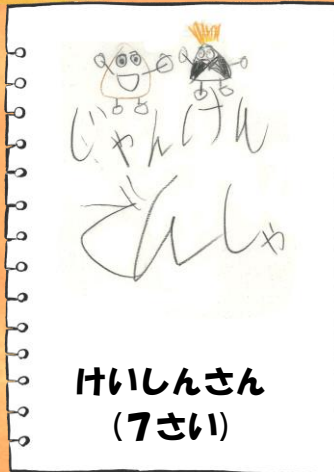 じゃんけん
でんしゃ
けいしんさん
(7さい)